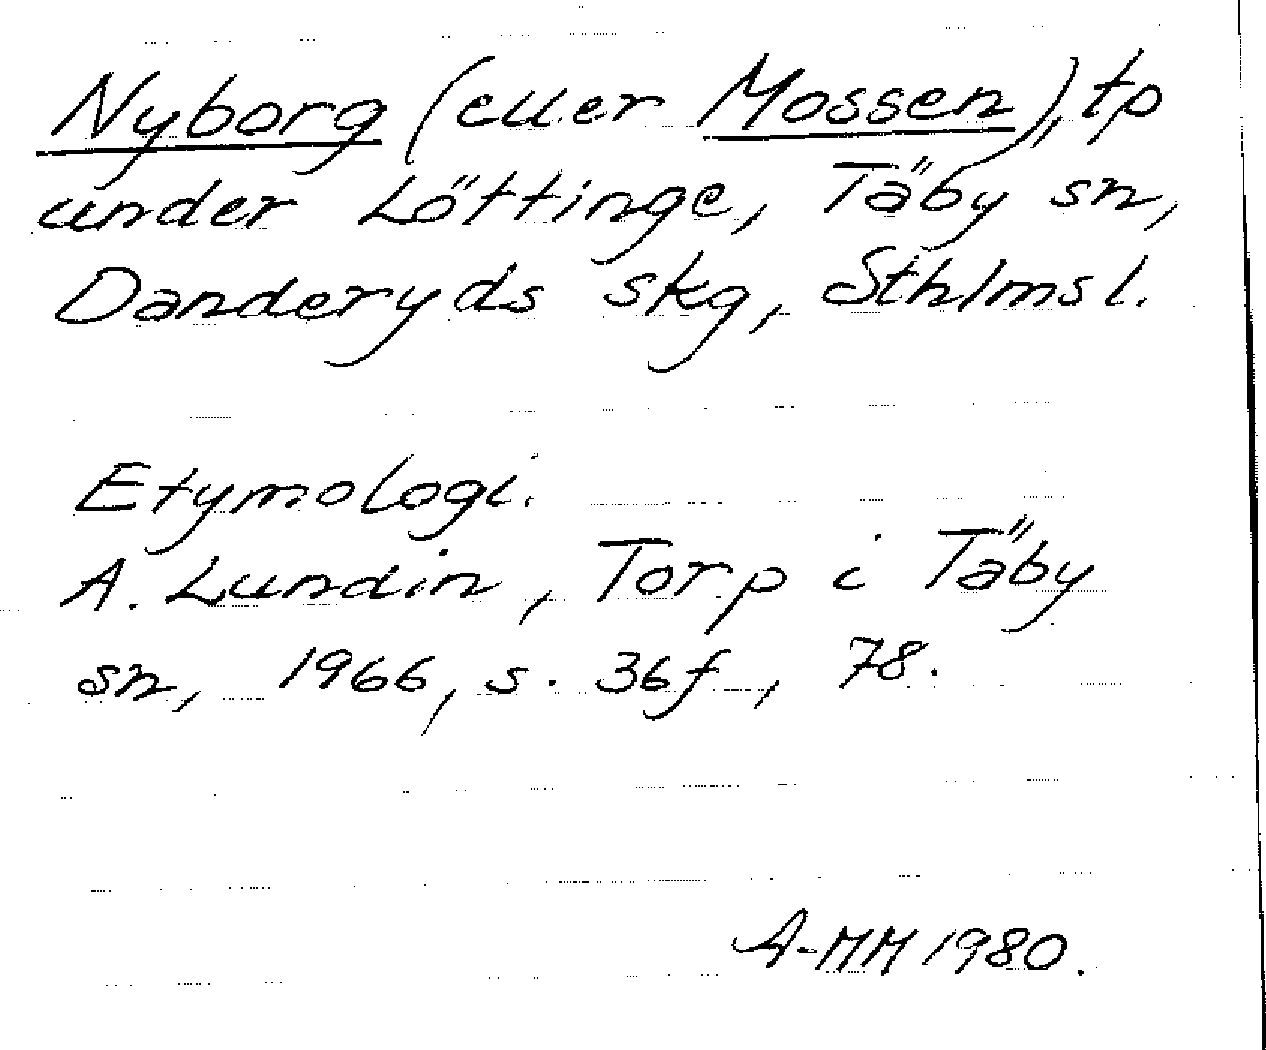 Nyborg (eller Mossen), tp
under Löttinge, Täby sn,
Danderyds skg, Sthlmsl.
Etymologi.
A. Lundin, Torp i Täby
sn, 1966, s. 36f, 78.
A-MM 1980.